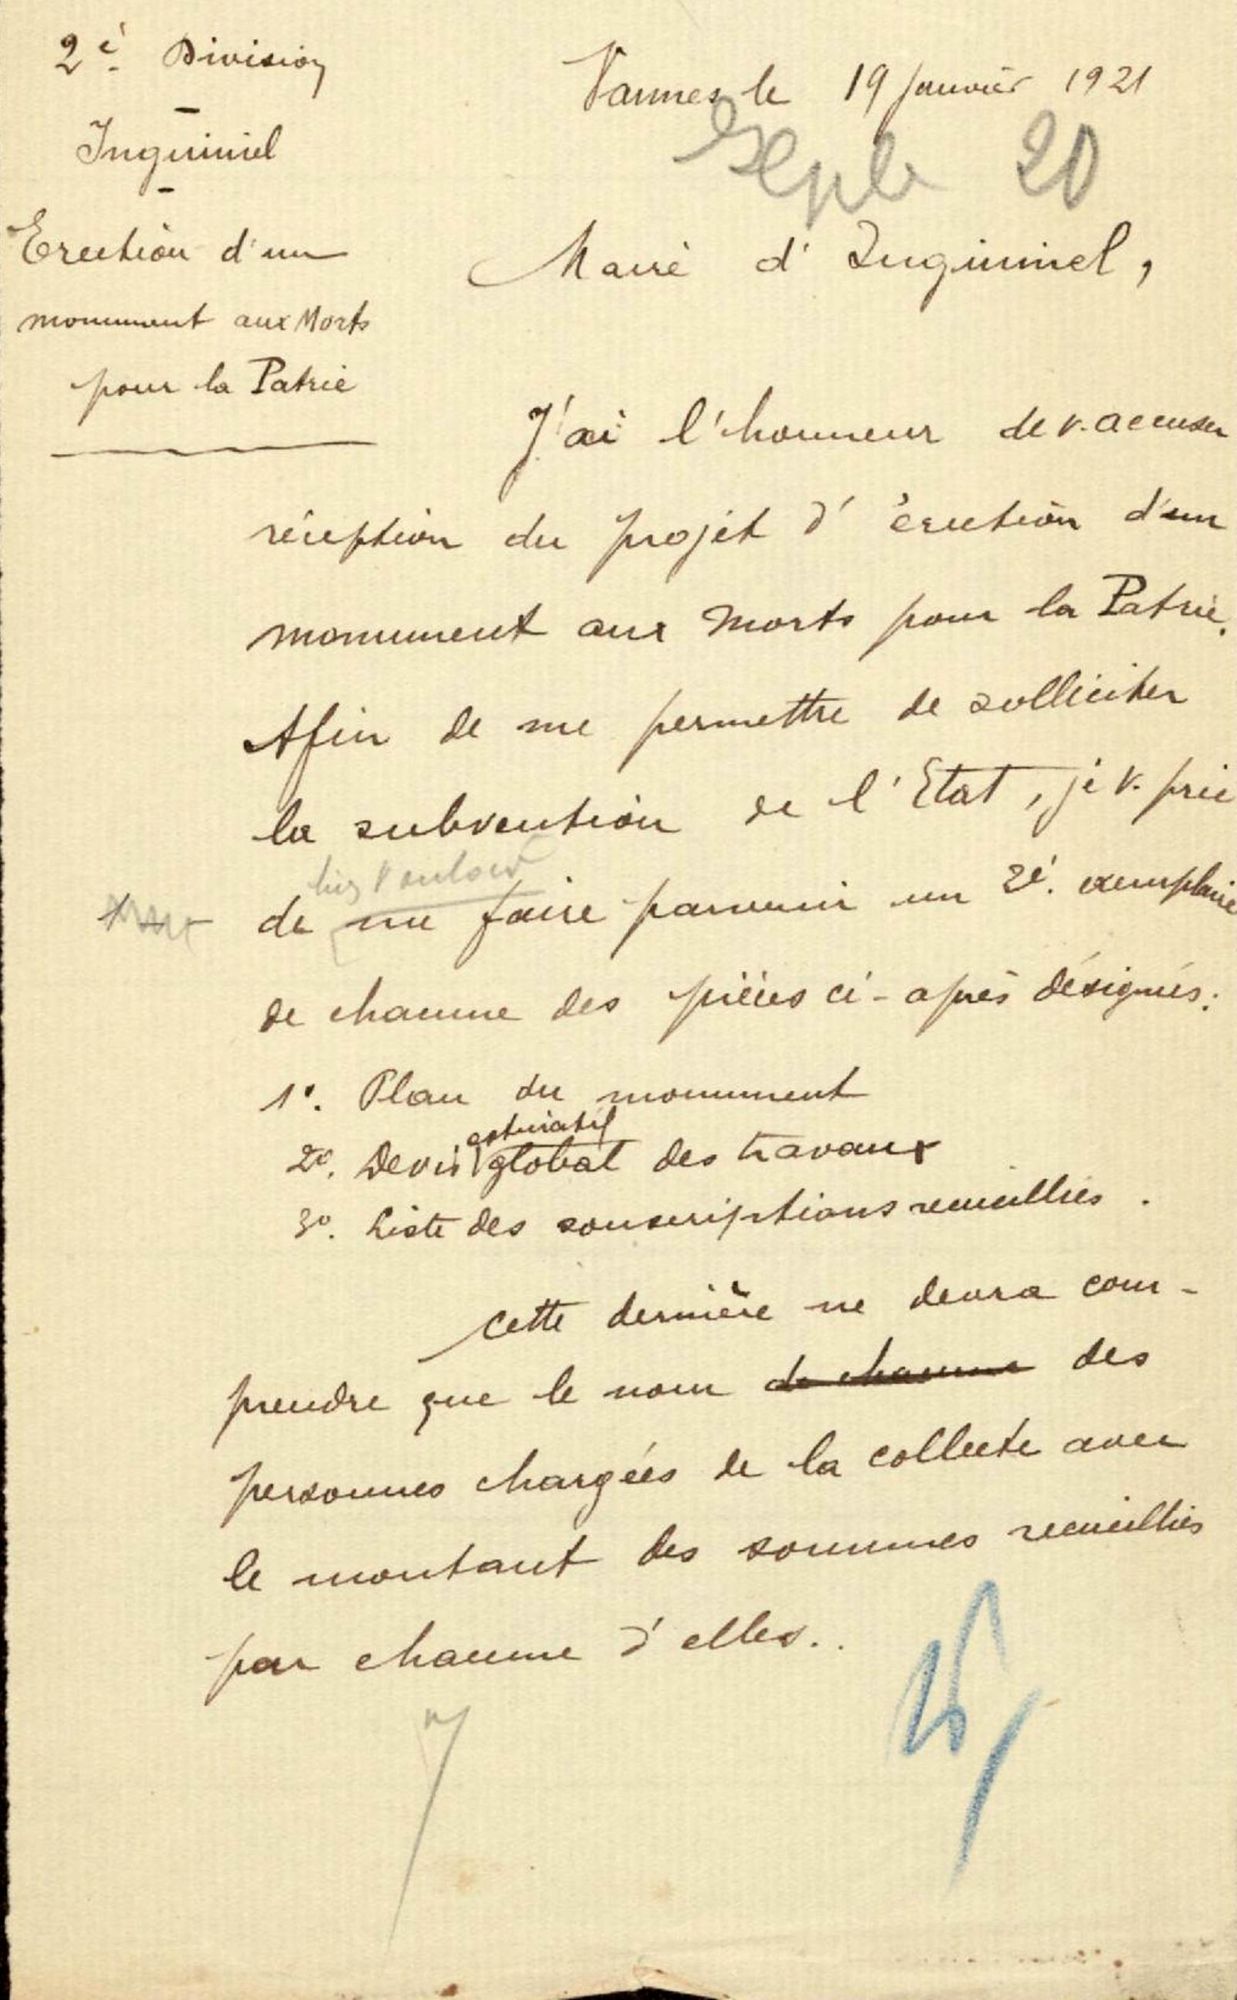 2è Division
Inguiniel
Erection d'un
monument aux Morts
pour la Patrie
Vannes le 19 Janvier 1921
20
Maire d'Inguiniel,
J'ai l'honneur de v. accuser
réception du projet d'érection d'un
monument aux Morts pour la Patrie.
Afin de me permettre de solliciter
la subvention de l'Etat, je v. prie
bien vouloir
de me faire parvenir un 2è. exemplaire
de chacune des pièces ci-après désignées:
1°. Plan du monument
estimatif
2°. Devis global des travaux
3°. Liste des souscriptions recueillies.
Cette dernière ne devra com-
prendre que le nom de chacune des
personnes chargées de la collecte avec
le montant des sommes recueillies
par chacune d'elles..